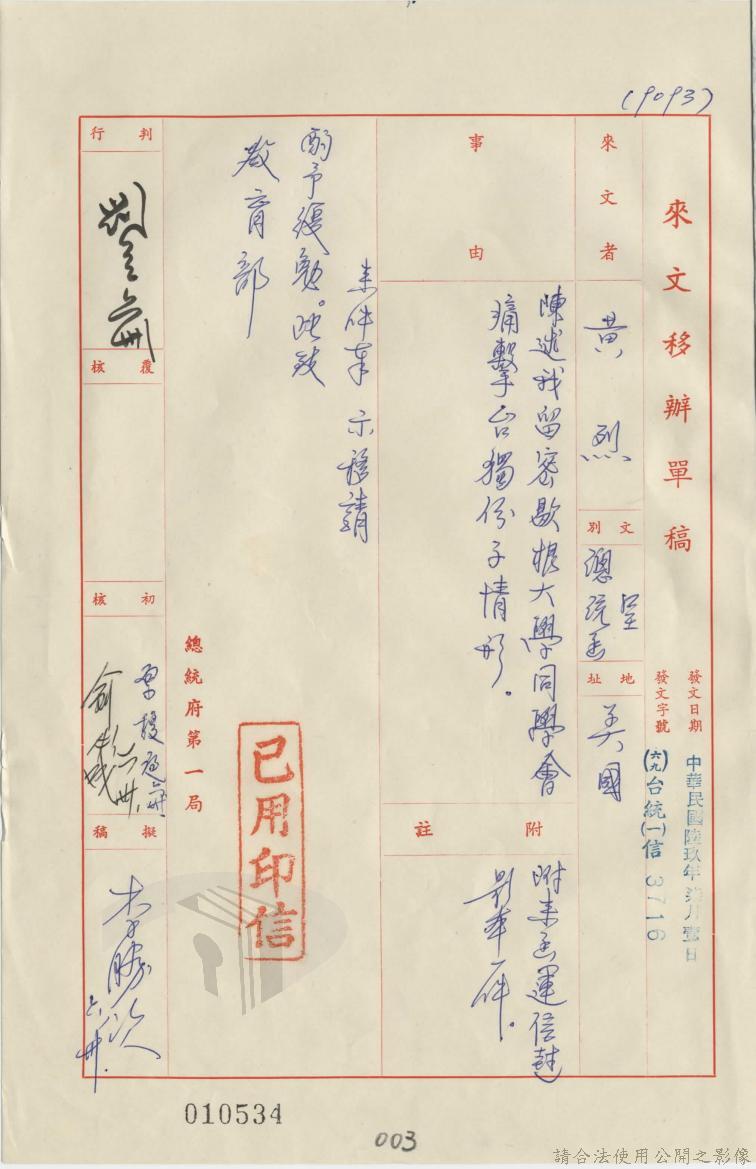 (9093)
來文移辦單稿
發文日期 中華民國陸玖年柒月壹日
發文字號 (六九)台統(一)信 3716
來文者 黃烈
文別 呈總統函
地址 美國
事由
陳述我留密歇根大學同學會
痛擊台獨份子情形。
附註
附來函連信封
影本一件。
來件奉 示移請
酌予獎勉。此致
教育部
總統府第一局
已用印信
判行
覆核
初核
擬稿
李勝
六
010534
003
請合法使用公開之影像